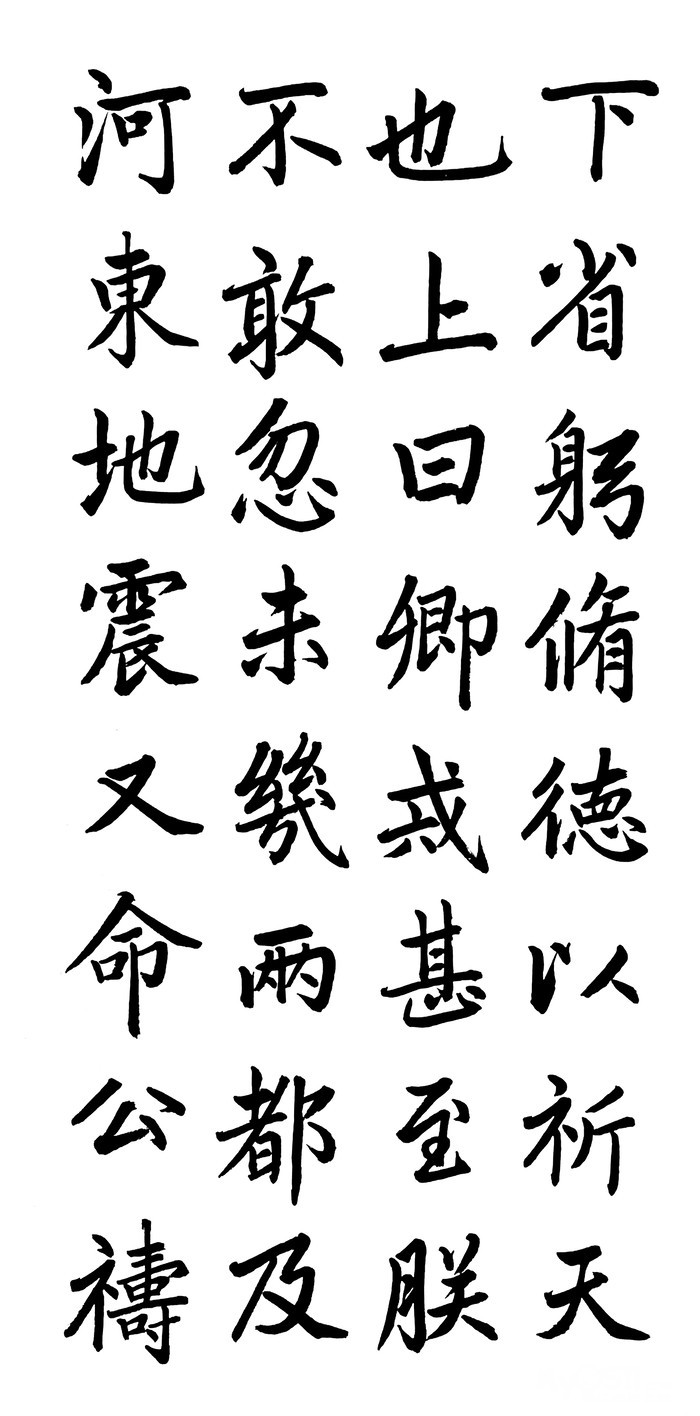 下省躬脩德以祈天
也上曰卿戒甚至朕
不敢忽未幾兩都及
河東地震又命公禱